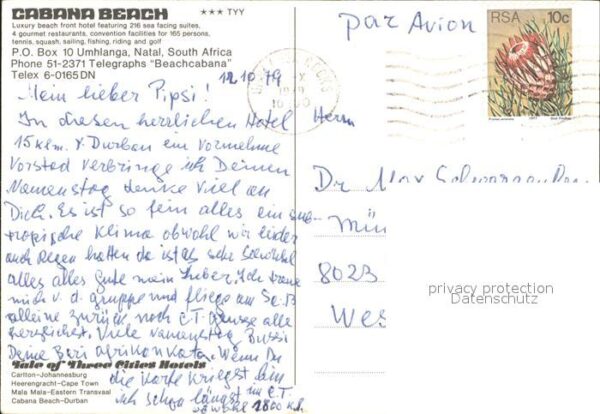 CABANA BEACH ★★★ TYY
Luxury beach front hotel featuring 216 sea facing suites,
4 gourmet restaurants, convention facilities for 165 persons,
tennis, squash, sailing, fishing, riding and golf
P.O. Box 10 Umhlanga, Natal, South Africa
Phone 51-2371 Telegraphs "Beachcabana"
Telex 6-0165DN
12.10.79
Mein lieber Pipsi!
In diesem herrlichen Hotel
15 klm. v. Durban ein vornehme
Vorstad verbringe ich Deinen
Namenstag denke viel an
Dich. Es ist so fein alles ein sub
tropische Klima obwohl wir leider
auch Regen hatten da ist es sehr
alles alles Gute mein Lieber. Ich
mich v. d. Gruppe und fliege am
alleine zurück nach C.T. alle
herzlichst. Viele Namenstag Bussi
Deine Wenn Du
Tale of Three Cities Hotels
Carlton-Johannesburg
Heerengracht-Cape Town
Mala Mala-Eastern Transvaal
Cabana Beach-Durban
die Karte kriegst bin
ich schon längst in C.T.
1800 km
Par Avion
RSA 10c
1977
Herrn
Dr Max
Mün
8023
Wes
privacy protection
Datenschutz